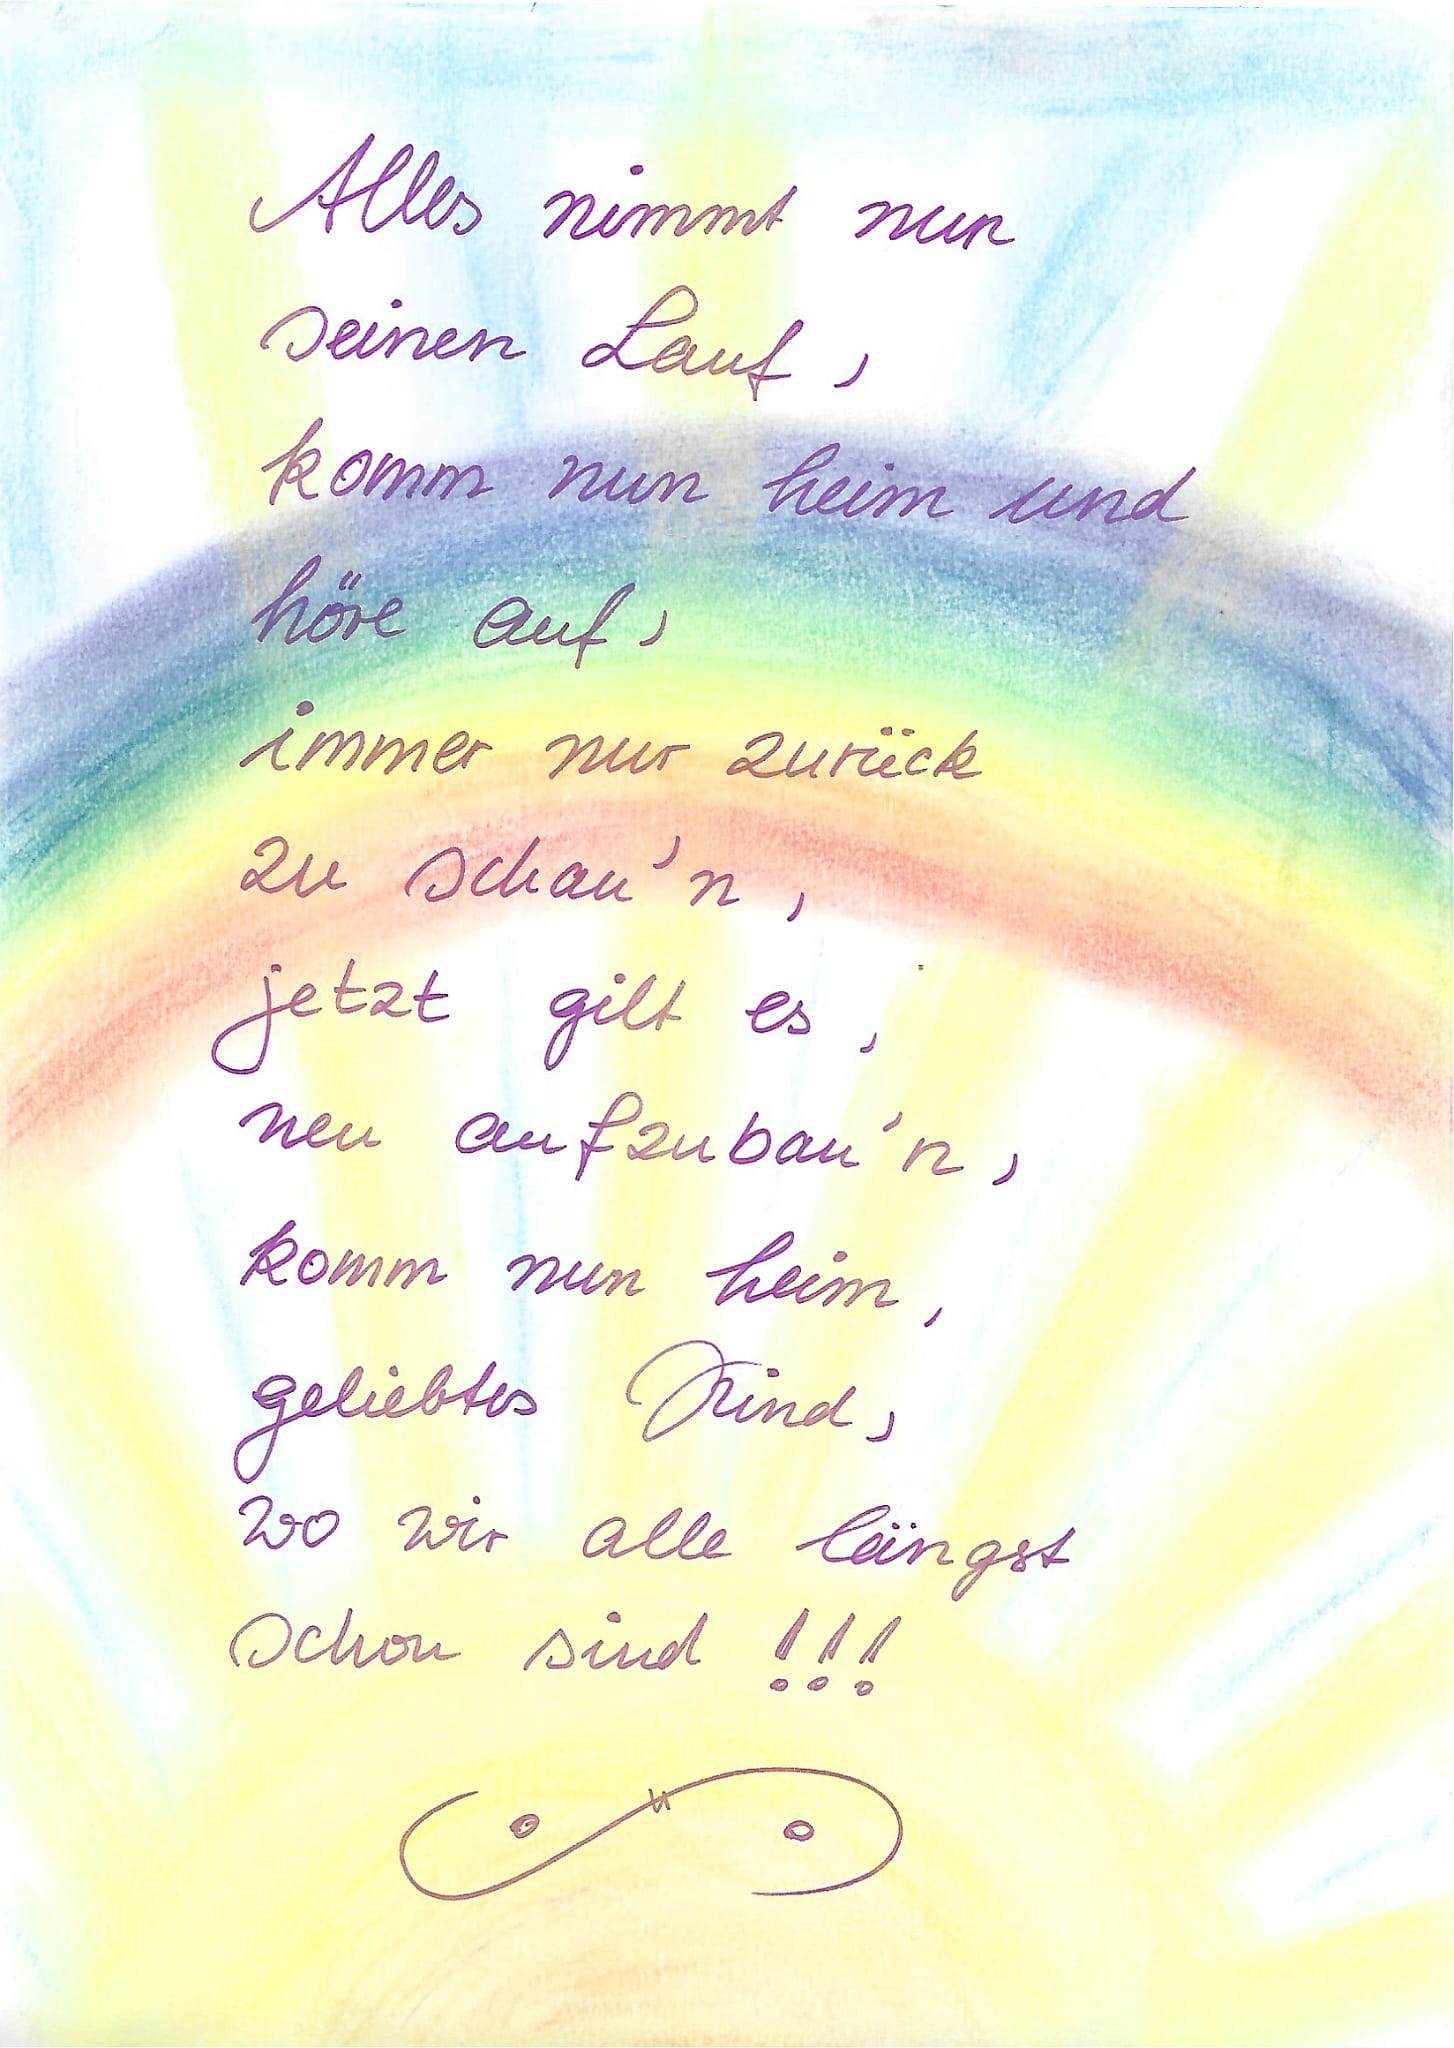 Alles nimmt nun
seinen Lauf,
komm nun heim und
höre auf,
immer nur zurück
zu schau'n,
jetzt gilt es,
neu aufzubau'n,
komm nun heim,
geliebtes Kind,
wo wir alle längst
schon sind !!!